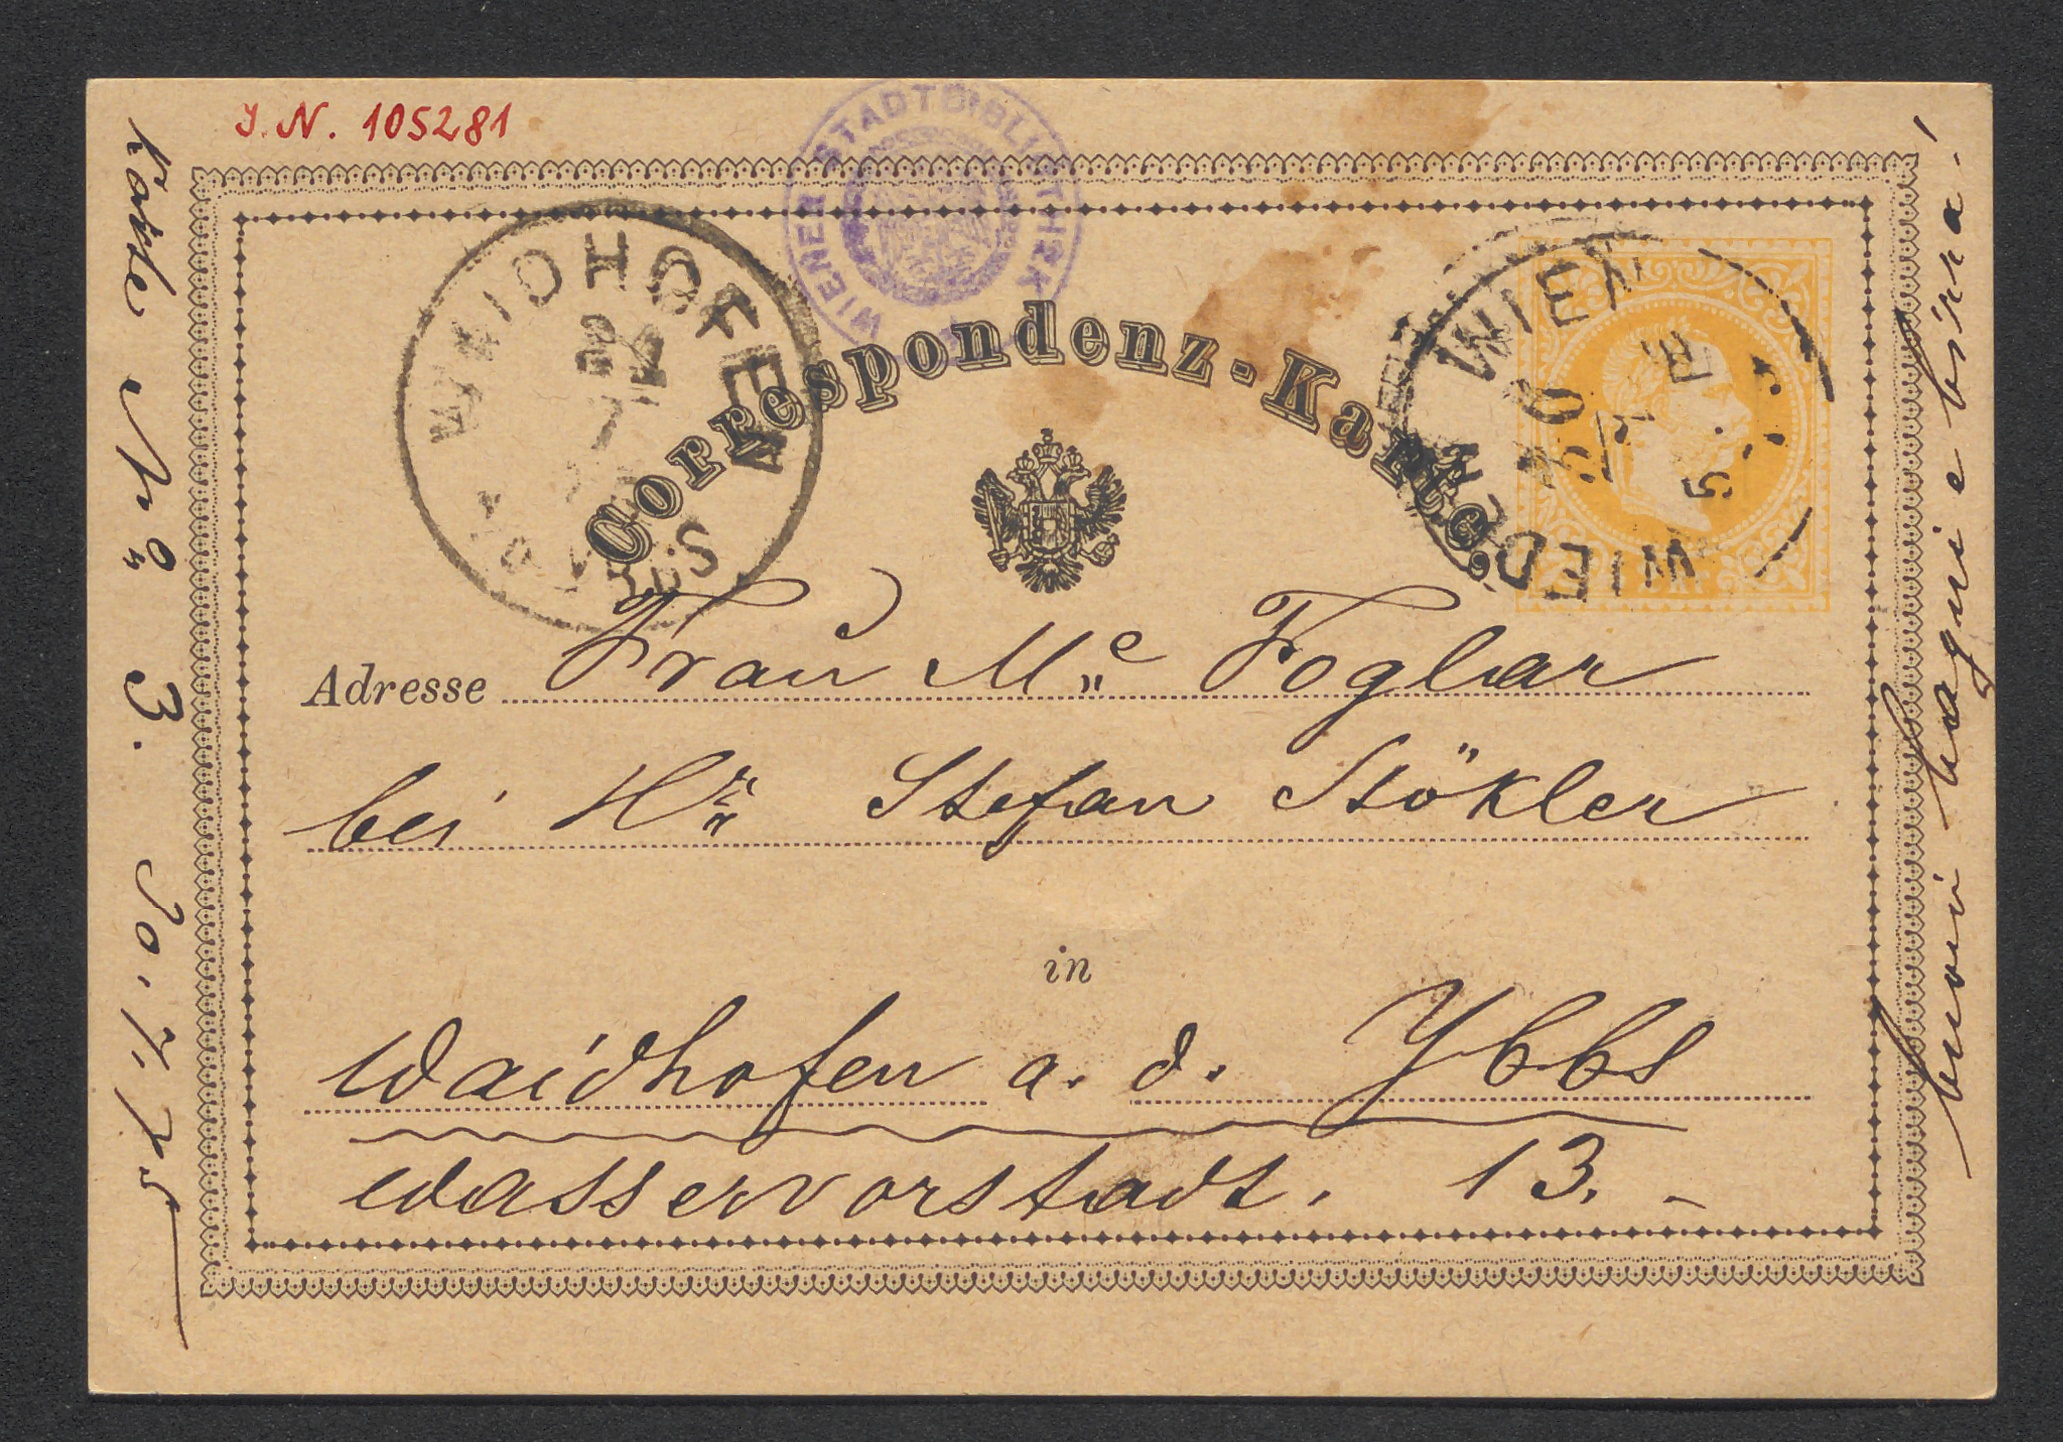 J. N. 105281
WIENER STADTBIBLIOTHEK
WAIDHOFEN
YBBS
WIEN
WIEDEN
Correspondenz-Karte.
Adresse Frau M.e Foglar
bei Hrr Stefan Stökler
in
Waidhofen a. d. Ybbs
Wasservorstadt. 13. –
Karte No 3. 20. 7. 75
buoni bagni e birra!